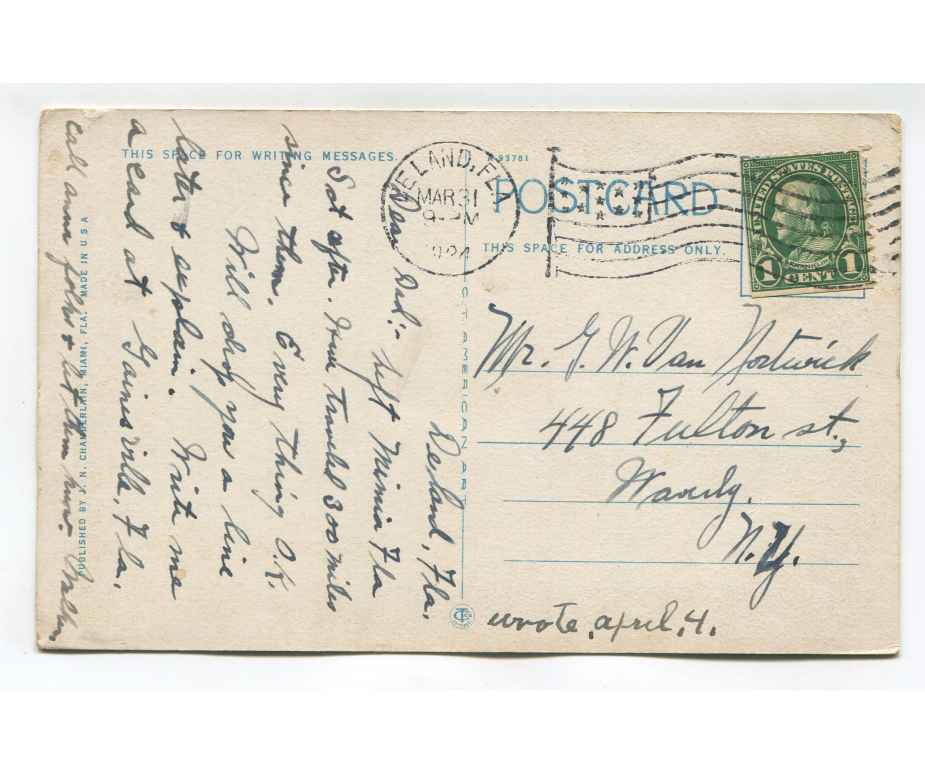 THIS SPACE FOR WRITING MESSAGES.
93781
DELAND, FLA.
MAR 31
9 PM
1924
POSTCARD
THIS SPACE FOR ADDRESS ONLY.
UNITED STATES POSTAGE
1 CENT 1
Deland, Fla.
Dear Dad:- Left Mimia Fla
Sat after. Have traveled 300 miles
since then. Every thing O.K.
Will drop you a line
later & explain. Write me
a card at Gainesville, Fla.
Call anna folks &
Mr. G. W. Van Nortwick
448 Fulton st.,
Waverly.
N.Y.
wrote, april, 4.
PUBLISHED BY J. N. CHAMBERLAIN, MIAMI, FLA. MADE IN U.S.A
C.T. AMERICAN ART